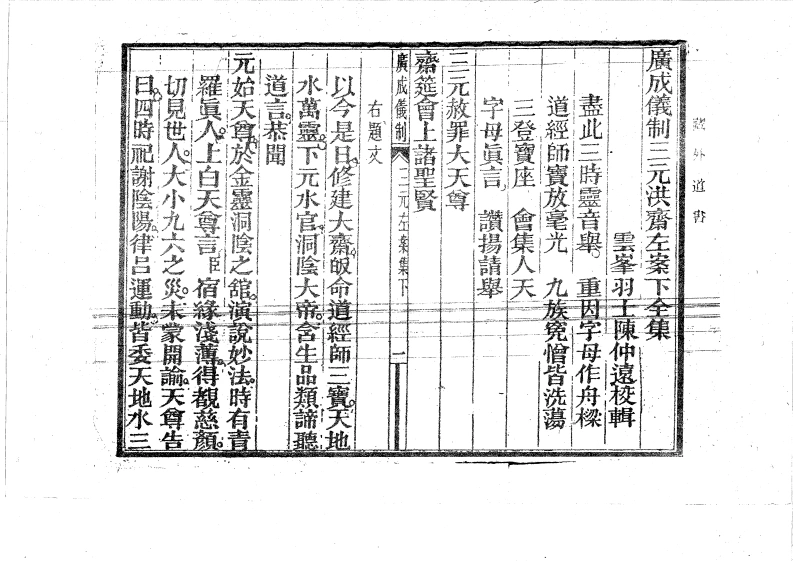 藏外道書
廣成儀制三元洪齋左案下全集
雲峯羽士陳仲遠校輯
盡此三時靈音舉　重因字母作舟樑
道經師寶放毫光　九族寃憎皆洗蕩
三登寶座　會集人天
字母眞言　讚揚請舉
三元赦罪大天尊
齋筵會上諸聖賢
廣成儀制　三元左案集下　一
右題文
以今是日修建大齋皈命道經師三寶天地
水萬靈下元水官洞陰大帝含生品類諦聽
道言恭聞
元始天尊於金靈洞陰之館演說妙法時有青
羅眞人上白天尊言臣宿緣淺薄得覩慈顏
切見世人大小九六之災未蒙開諭天尊告
曰四時祀謝陰陽律呂運動皆委天地水三